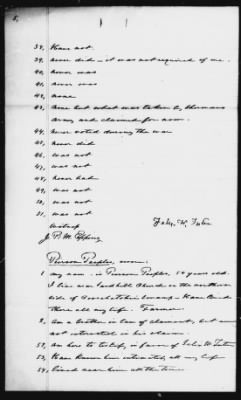 5,
38, Have not.
39, never did - it was not required of me.
40, never was
41, never was
42, none
43, none but what was taken by Shermans
army and claimed for now.
44, never voted during the war
45, never did
46, was not
47, was not
48, never had
49, was not
50, was not
51, was not
Attest
J. P. M. Epping
Pearson Peeples, sworn.
1 my name is Pearson Peeples, 50 years old.
I live near Church on the northern
side of swamp - Have lived
there all my life. Farmer
2, Am a brother in law of claimant, but am
not interested in his claim.
52, Am here to testify in favor of
53, Have known him intimately all my life
54, lived near him all the time